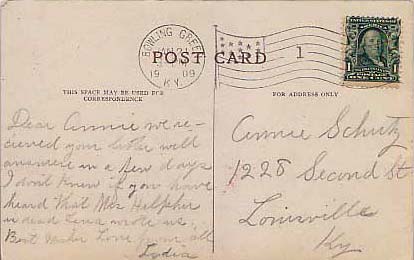 BOWLING GREEN
JAN
1909
KY.
1
POST CARD
1 1
THIS SPACE MAY BE USED FOR
CORRESPONDENCE
FOR ADDRESS ONLY
Dear Annie we re-
cieved your letter will
answer in a few days
I don't know if you have
heard that Mrs Helpher
is dead Lena wrote us.
Best wishes Love from all
Lydia
Annie Schutz
1228 Second St
Louisville
Ky